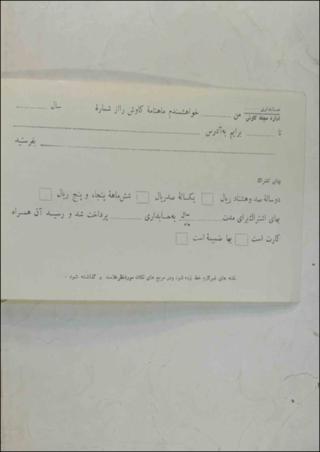 حسابداری
اداره مجله کاوش
من ............ خواهشمندم ماهنامهٔ کاوش را از شمارهٔ ............ سال ............
تا ............ برایم به‌آدرس
بفرستید
بهای اشتراک
دوساله صد و هشتاد ریال □ یکساله صد ریال □ شش‌ماهه پنجاه و پنج ریال □
بهای اشتراک برای مدت ............ به‌حسابداری ............ پرداخت شد و رسید آن همراه
کارت است □ بها ضمیمهٔ است □
خط زده شود ودر مربع های نکات موردنظر علامت × گذاشته شود .